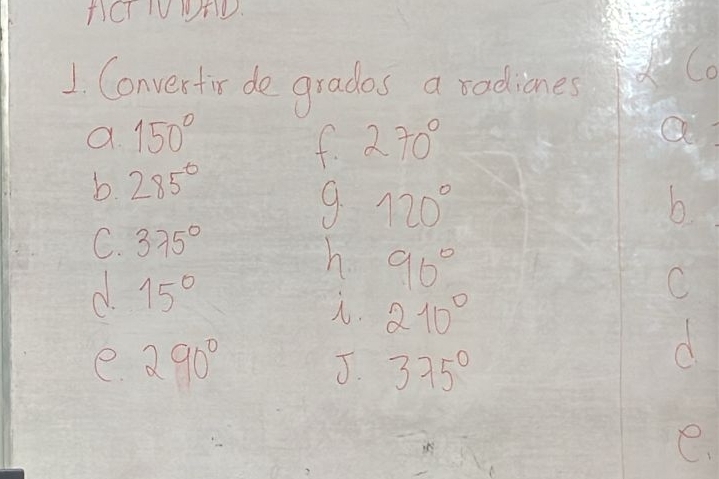 ACTIVIDAD.
1. Convertir de grados a radianes
a. 150°
b. 285°
c. 375°
d. 15°
e. 290°
f. 270°
g. 120°
h. 90°
i. 210°
J. 375°
2 Co
a
b.
c
d
e.